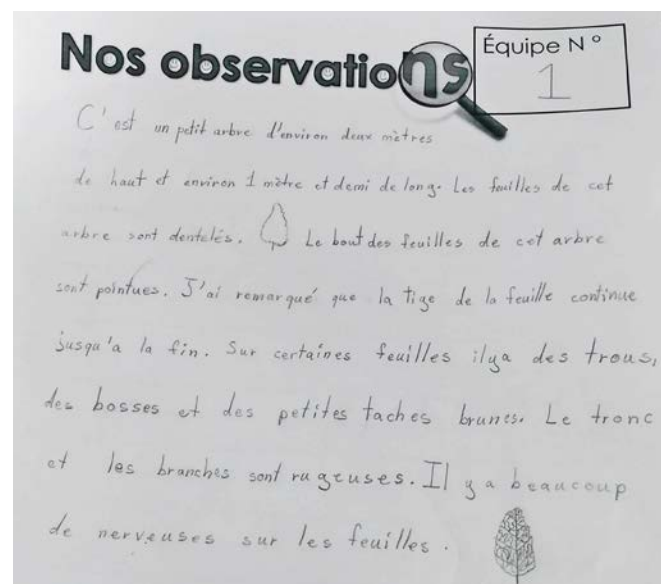 Nos observations
Équipe N°
1
C'est un petit arbre d'environ deux mètres
de haut et environ 1 mètre et demi de long. Les feuilles de cet
arbre sont dentelés. Le bout des feuilles de cet arbre
sont pointues. J'ai remarqué que la tige de la feuille continue
jusqu'a la fin. Sur certaines feuilles ilya des trous,
des bosses et des petites taches brunes. Le tronc
et les branches sont rugeuses. Il y a beaucoup
de nerveuses sur les feuilles.